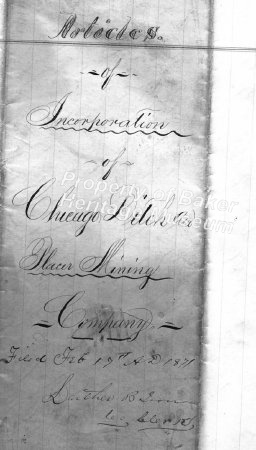 Articles.
of
Incorporation
of
Chicago Ditch &
Placer Mining
Company.
Filed Feb 19th A.D. 1871
Luther B
Co. Clerk
Property
Museum